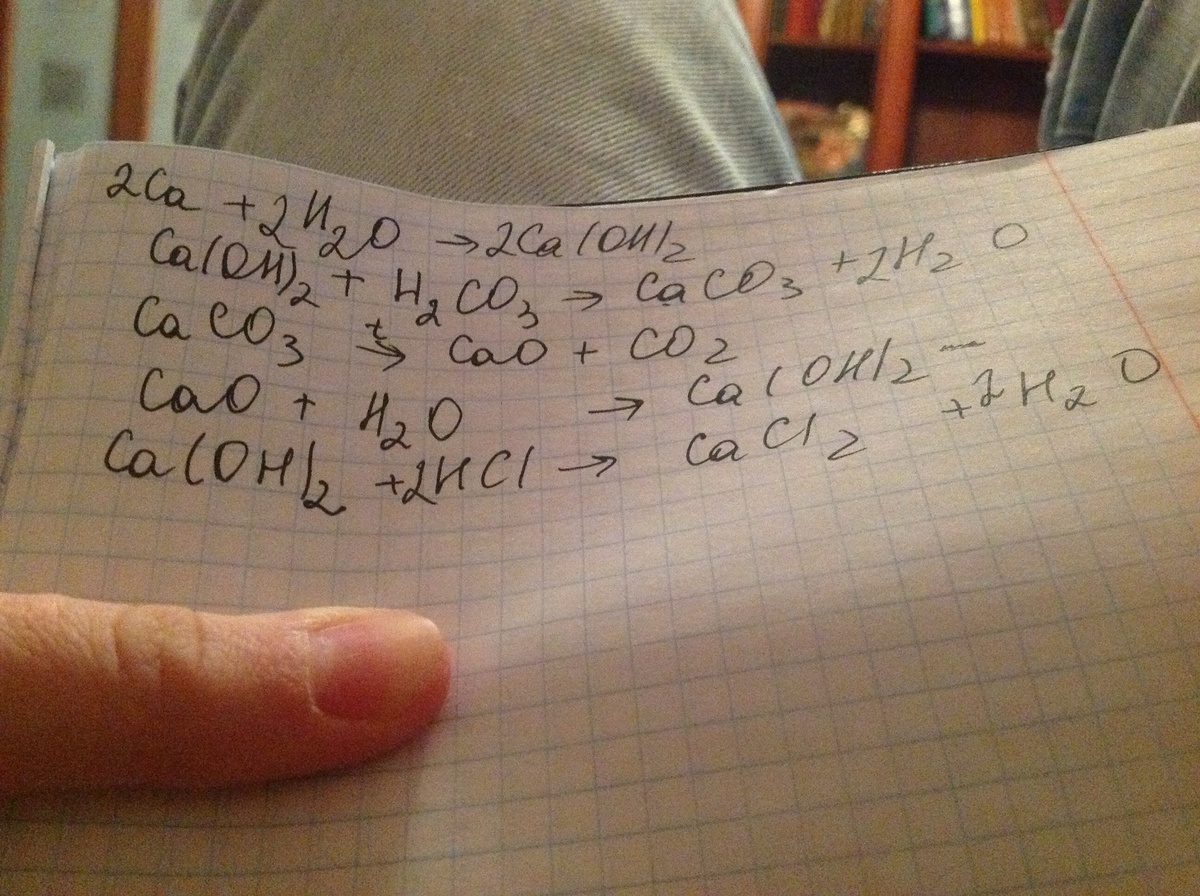 2Ca + 2H2O → 2Ca(OH)2
Ca(OH)2 + H2CO3 → CaCO3 + 2H2O
CaCO3 t→ CaO + CO2
CaO + H2O → Ca(OH)2
Ca(OH)2 + 2HCl → CaCl2 + 2H2O